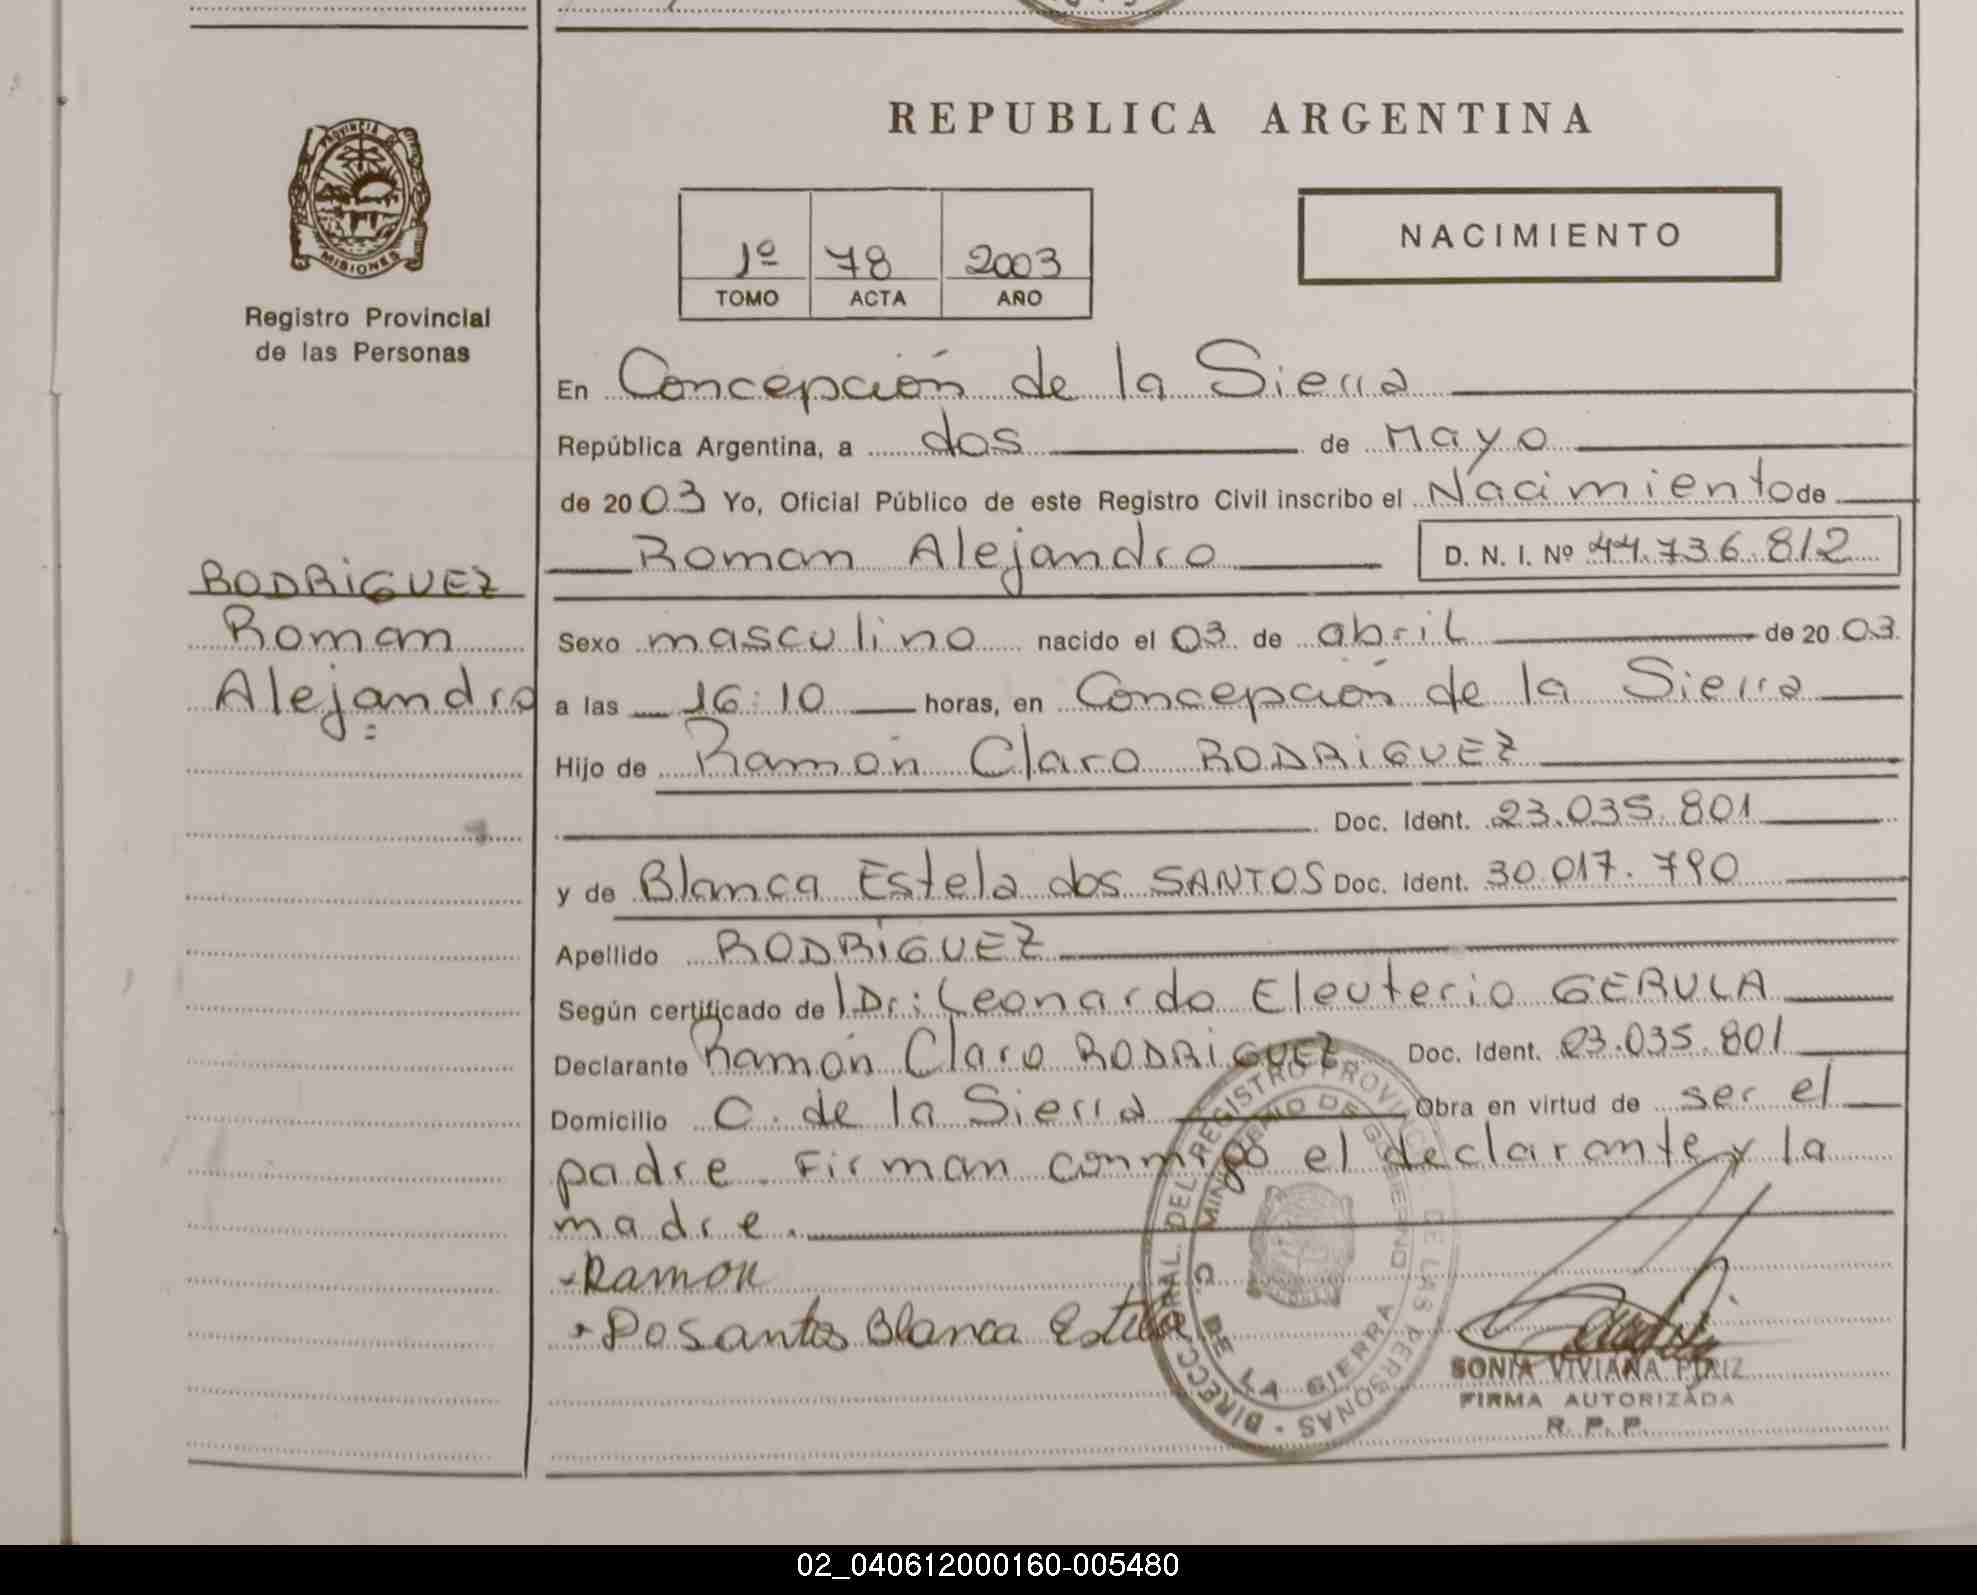 REPUBLICA ARGENTINA
PROVINCIA DE MISIONES
Registro Provincial
de las Personas
1º 78 2003
TOMO ACTA AÑO
NACIMIENTO
En Concepción de la Sierra
República Argentina, a dos de Mayo
de 2003 Yo, Oficial Público de este Registro Civil inscribo el Nacimiento de
Roman Alejandro D. N. I. Nº 44.736.812
RODRIGUEZ
Roman
Alejandro
Sexo masculino nacido el 03 de abril de 2003
a las 16:10 horas, en Concepción de la Sierra
Hijo de Ramón Claro RODRIGUEZ
Doc. Ident. 23.035.801
y de Blanca Estela dos SANTOS Doc. Ident. 30.017.790
Apellido RODRIGUEZ
Según certificado de Dr: Leonardo Eleuterio GERULA
Declarante Ramón Claro RODRIGUEZ Doc. Ident. 23.035.801
Domicilio C. de la Sierra Obra en virtud de ser el
padre. Firman conmigo el declarante y la
madre.
Ramon
Dosantos Blanca Estela
DIRECC. GRAL. DEL REGISTRO PROVINCIAL DE LAS PERSONAS
MINISTERIO DE GOBIERNO
C. DE LA SIERRA
SONIA VIVIANA PIRIZ
FIRMA AUTORIZADA
R. P. P.
02_040612000160-005480